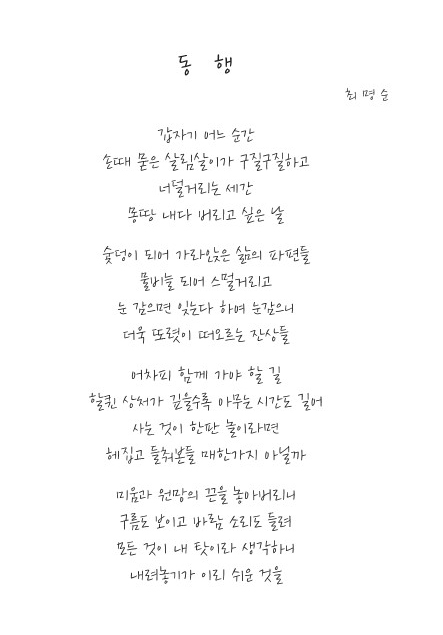 동 행
최 명 순
갑자기 어느 순간
손때 묻은 살림살이가 구질구질하고
너덜거리는 세간
몽땅 내다 버리고 싶은 날
숯덩이 되어 가라앉은 삶의 파편들
물비늘 되어 스멀거리고
눈 감으면 잊는다 하여 눈감으니
더욱 또렷이 떠오르는 잔상들
어차피 함께 가야 할 길
할퀸 상처가 깊을수록 아무는 시간도 길어
사는 것이 한판 놀이라면
헤집고 들춰본들 매한가지 아닐까
미움과 원망의 끈을 놓아버리니
구름도 보이고 바람 소리도 들려
모든 것이 내 탓이라 생각하니
내려놓기가 이리 쉬운 것을